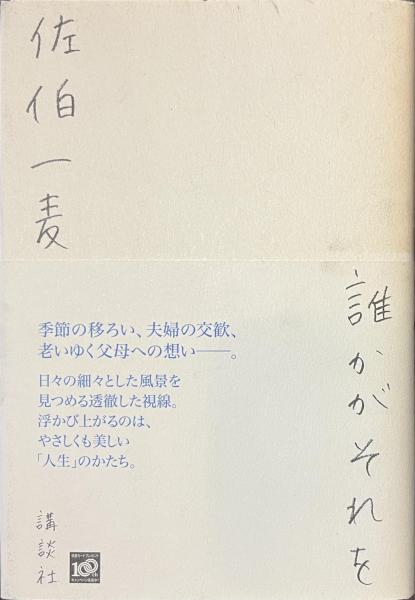 佐伯一麦
誰かがそれを
季節の移ろい、夫婦の交歓、
老いゆく父母への想い――。
日々の細々とした風景を
見つめる透徹した視線。
浮かび上がるのは、
やさしくも美しい
「人生」のかたち。
講談社
100